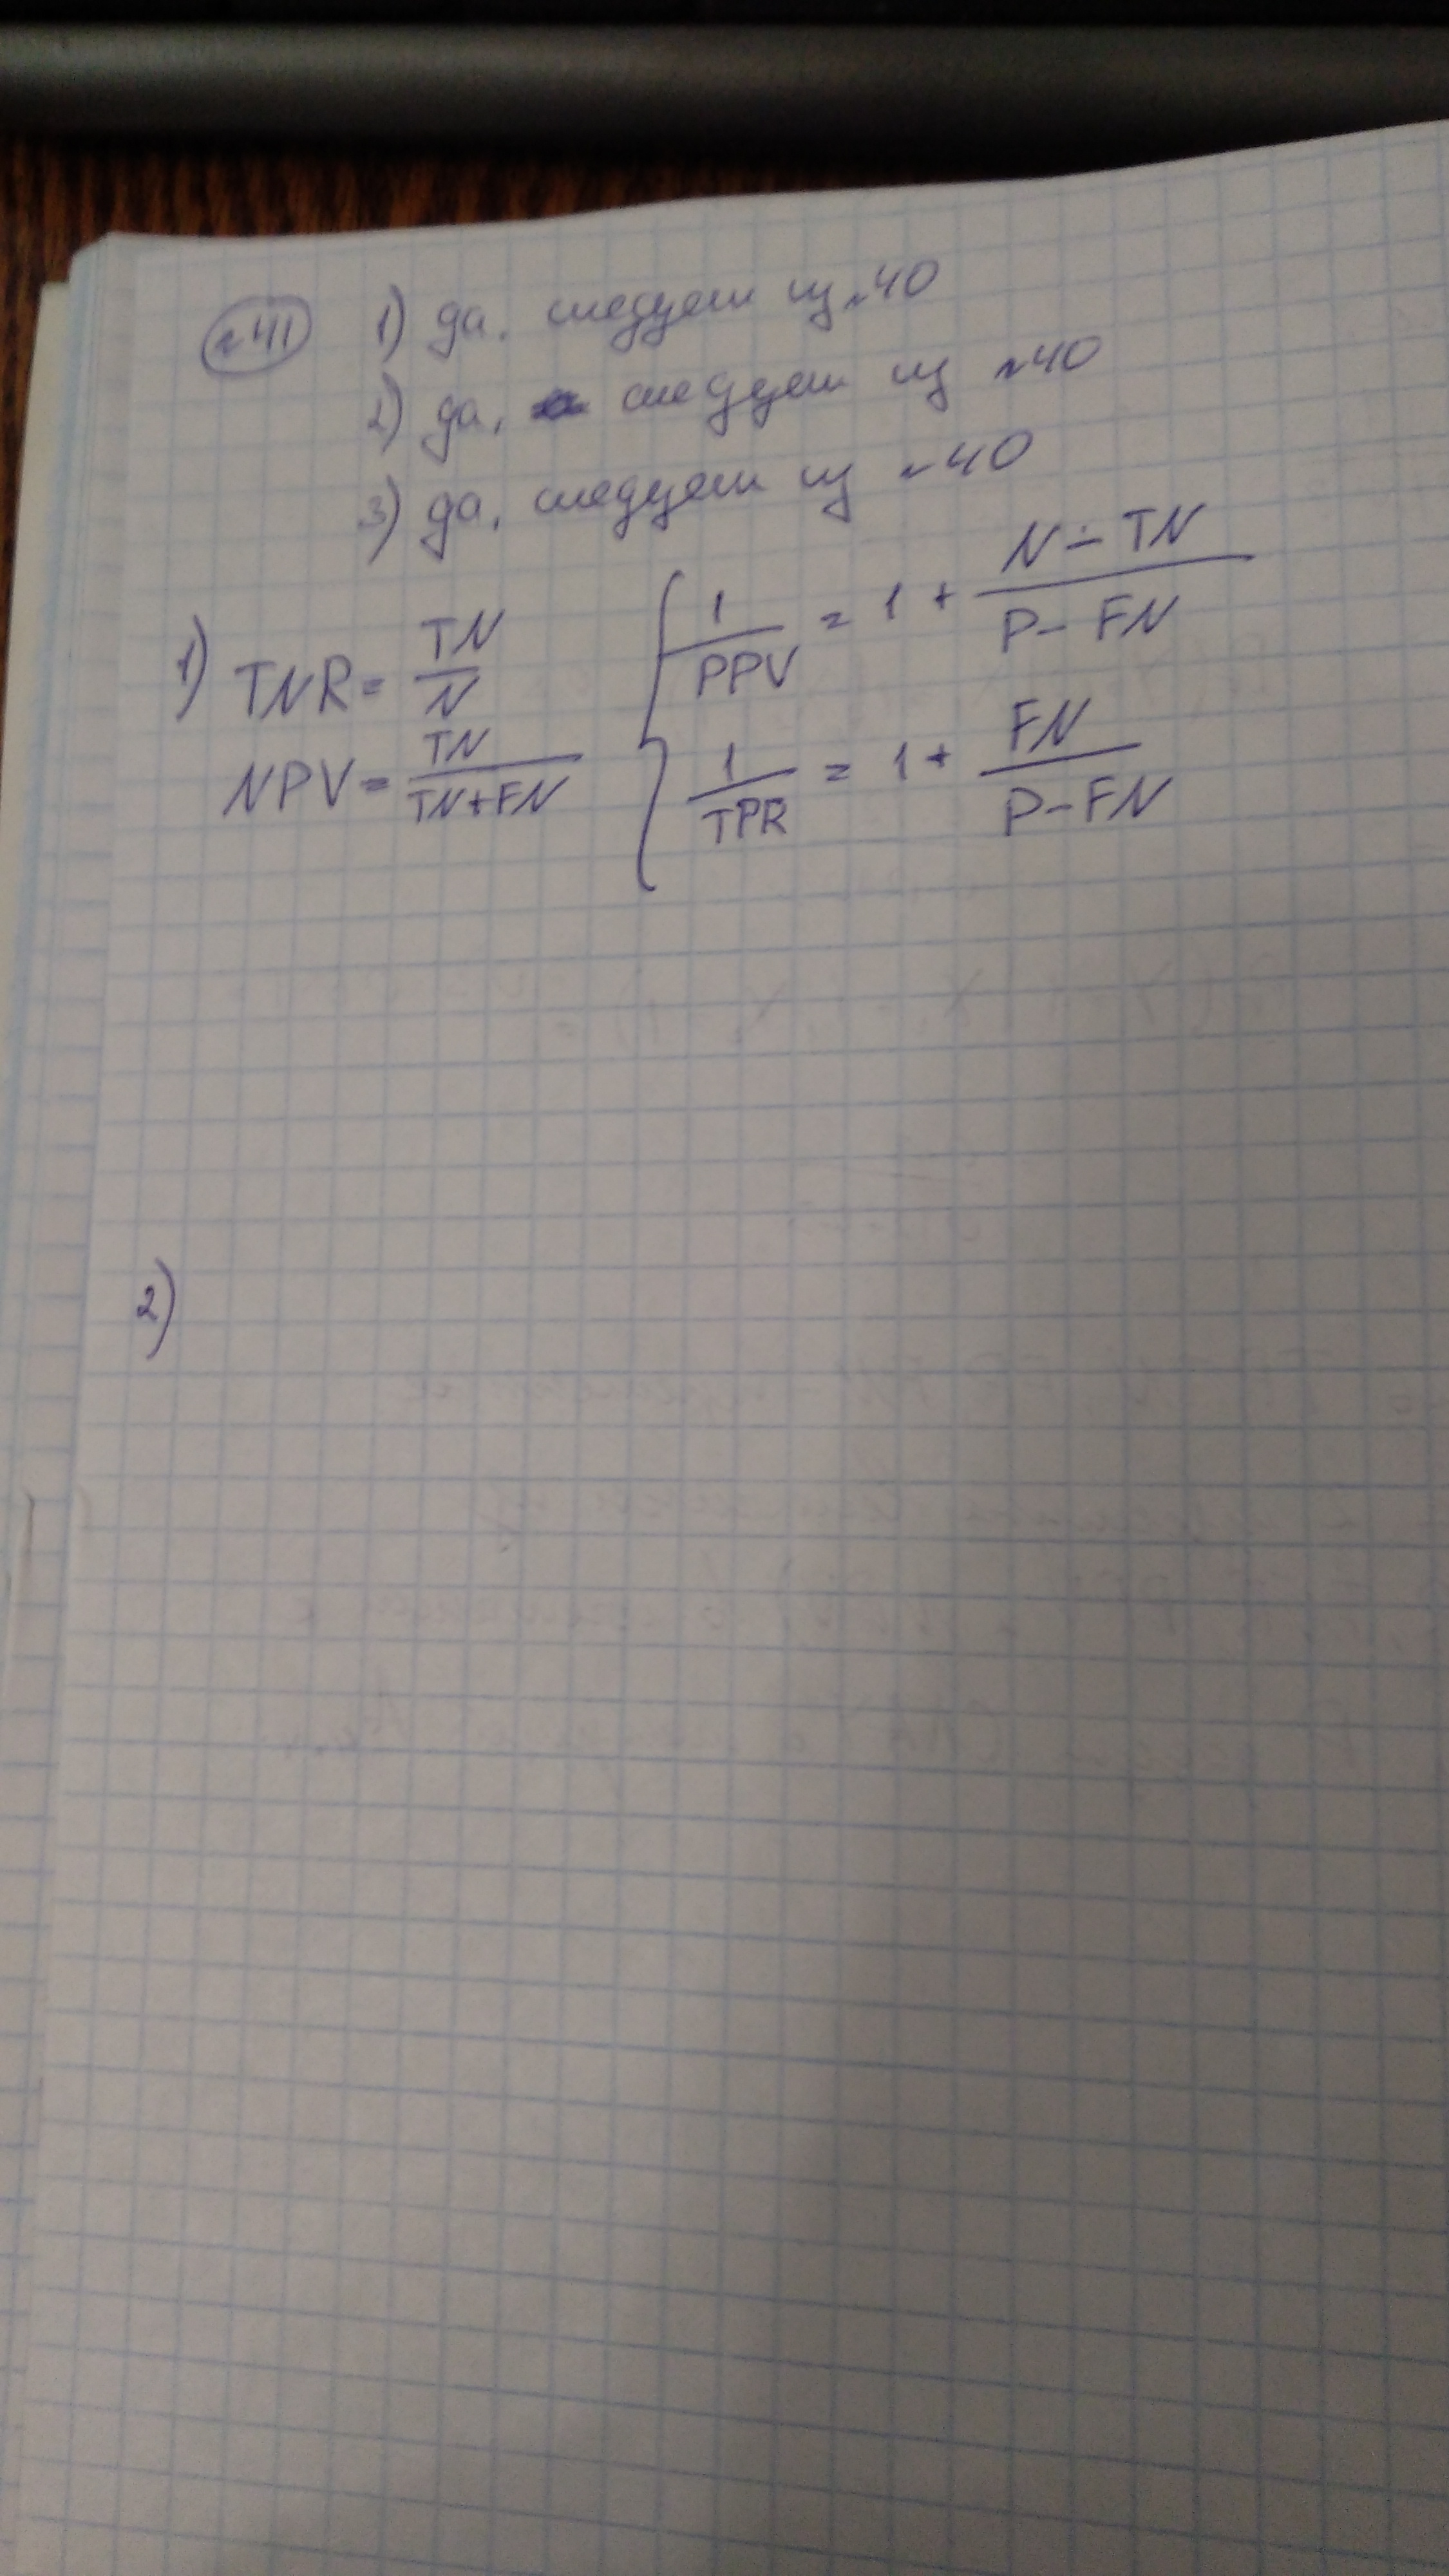 №41 1) да, следует из №40
2) да, следует из №40
3) да, следует из №40
1) TNR = TN/N
NPV = TN/(TN+FN)
{ 1/PPV = 1 + (N - TN)/(P - FN)
1/TPR = 1 + FN/(P - FN)
2)